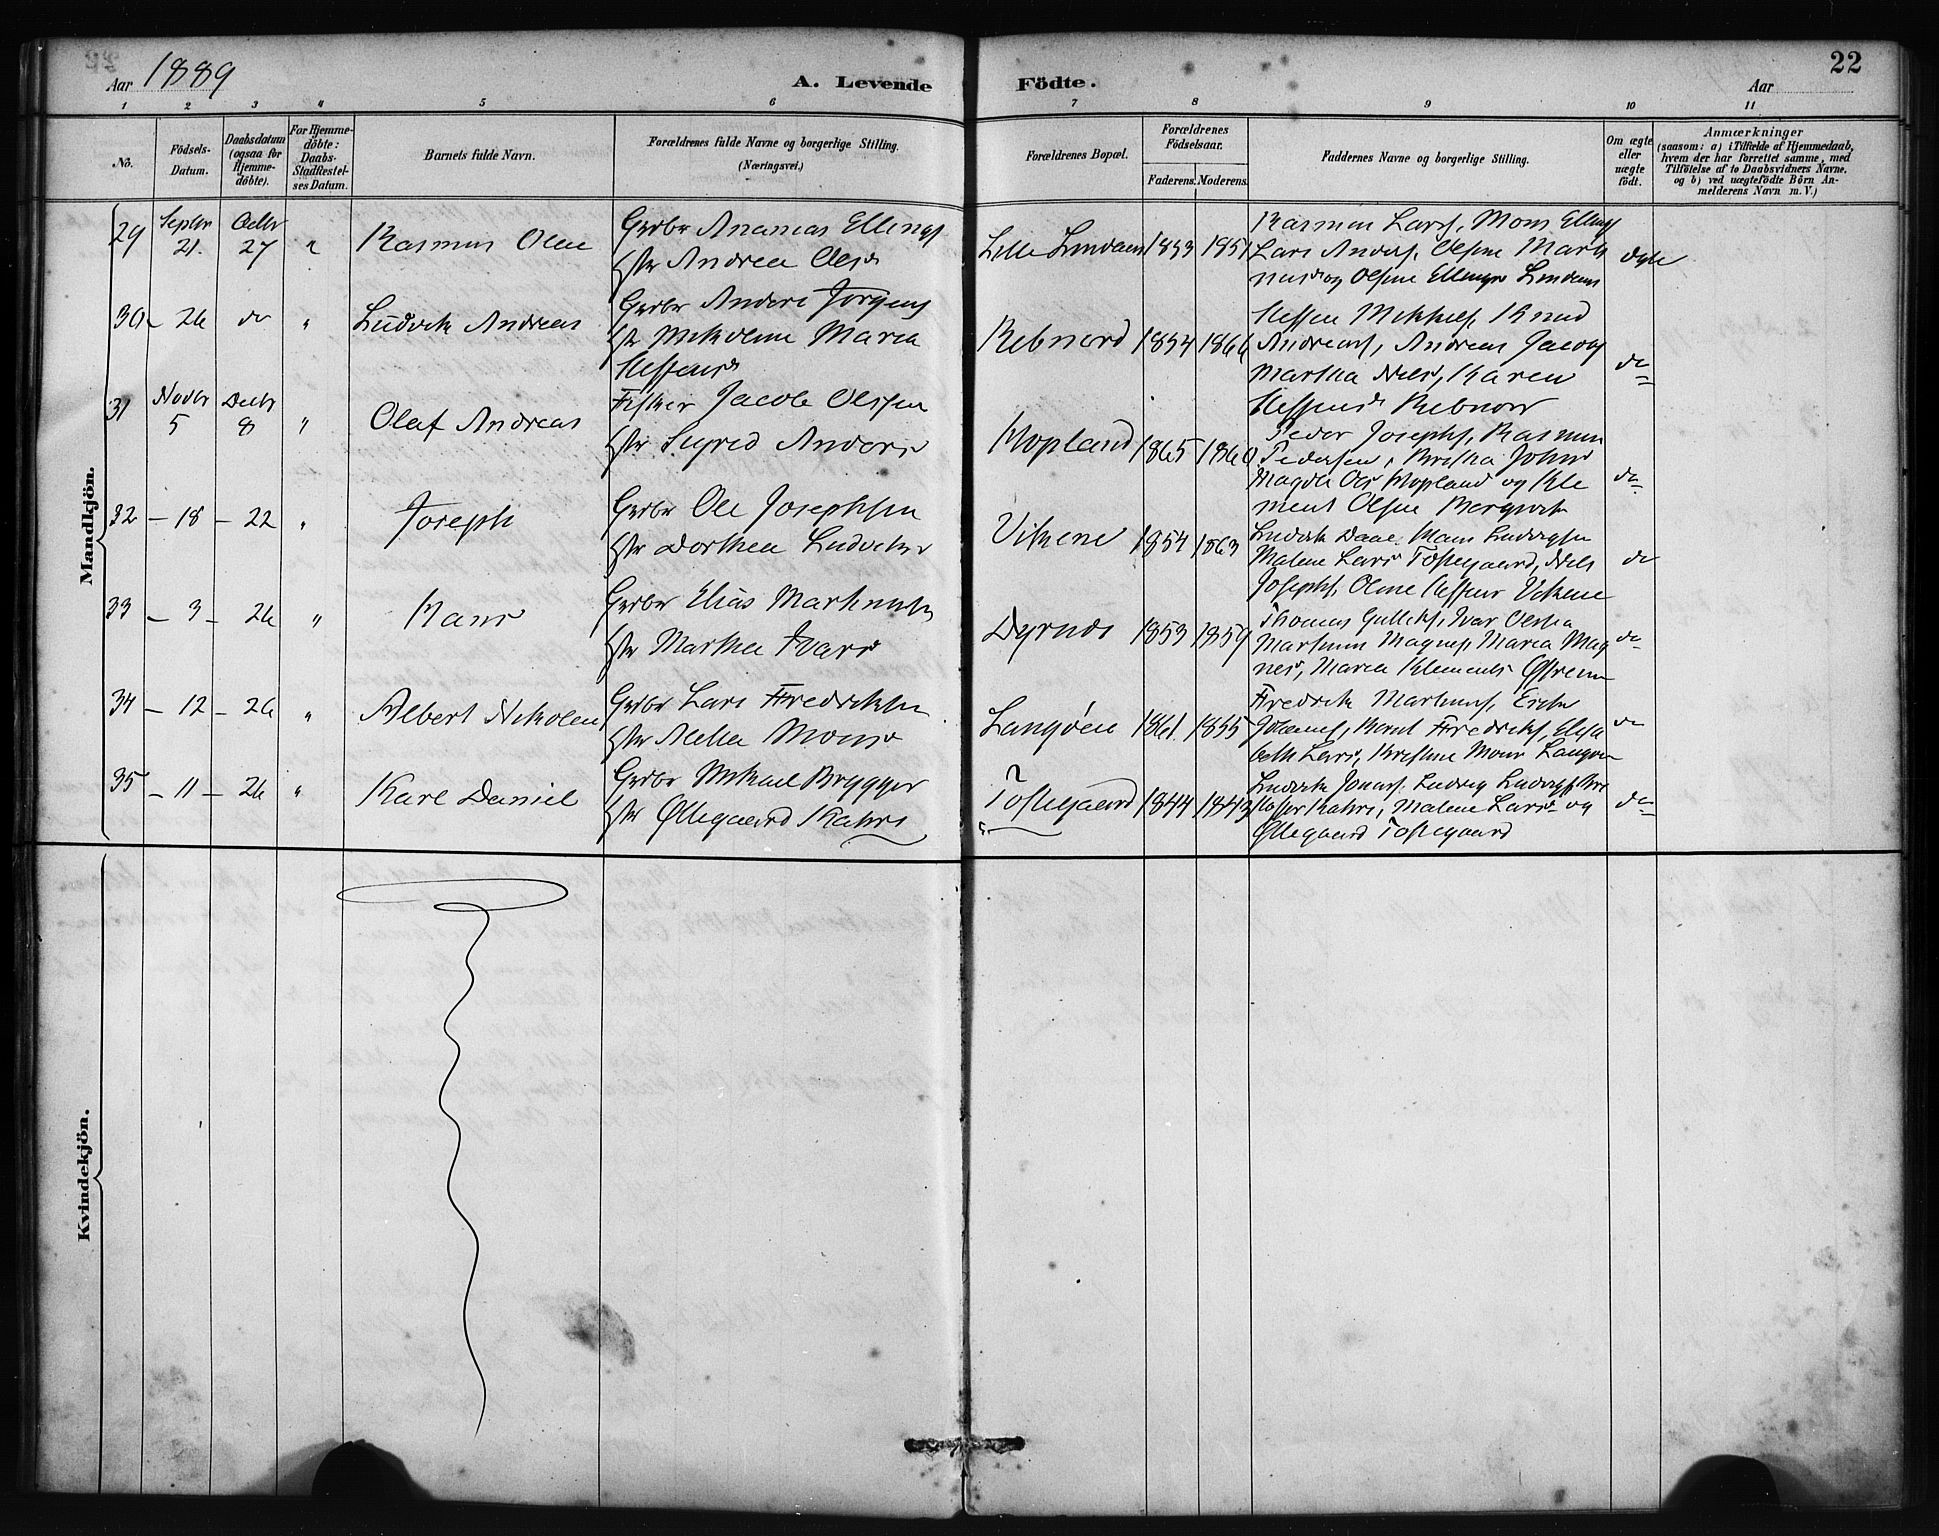 22
Aar 1889 A. Levende Födte. Aar
1 2 3 4 5 6 7 8 9 10 11
No.
Födsels-
Datum.
Daabsdatum
(ogsaa for
Hjemme-
döbte).
For Hjemme-
döbte:
Daabs-
Stadfæstel-
ses Datum.
Barnets fulde Navn.
Forældrenes fulde Navne og borgerlige Stilling.
(Næringsvei.)
Forældrenes Bopæl.
Forældrenes
Födselsaar.
Faderens. Moderens.
Faddernes Navne og borgerlige Stilling.
Om ægte
eller
uægte
födt.
Anmærkninger
(saasom: a) i Tilfælde af Hjemmedaab,
hvem der har forrettet samme, med
Tilföielse af to Daabsvidners Navne,
og b) ved uægtefödte Börn An-
melderens Navn m. V.)
Mandkjön.
29 Septbr 21. Octbr 27 " Rasmus Olai
Grdbr Ananias Ellings
Hstr Andrea Olsd
Lille Lindaas 1853 1851
Rasmus Lars, Mons Ellings
Lars Anders, Olsine Marti
nusd og Olsine Lindaas
ægte
30 - 26 do " Ludvik Andreas
Grdbr Anders Jørgens
Hstr Nikoline Maria
Steffensd
Rebnord 1854 1866
Steffen Mikkels, Knud
Andreas, Andreas Jacobs
Martha Nils, Karen
Steffensd Rebnor
do
31 Novbr 5 Decbr 8 " Olaf Andreas
Fisker Jacob Olssen
Hstr Sigrid Anders
Hopland 1865 1860
Peder Josephs, Rasmus
Pedersen, Johns
Magda Ols Hopland og Kle
ment Olsen
do
32 - 18 - 22 " Joseph
Grdbr Ole Josephsen
Hstr Dorthea Ludviks
Vikene 1854 1863
Ludvik Daae, Mons Ludvigsen
Malene Lars Tostegaard, Nils
Josephs, Oline Steffens Vikene
do
33 - 3 - 26 " Hans
Grdbr Elias Martinusen
Hstr Marthea Ivars
Dyrnæs 1853 1859
Thomas Gulliks, Ivar
Martinus Magnus, Maria Mag
nes, Maria Klements
do
34 - 12 - 26 " Albert Nikolai
Grdbr Lars Fredriksen
Hstr Alethea Mons
Langøen 1861. 1855
Fredrik Martinus,
Johannes, Bernt Fredriks, Elisa
beth Lars, Kristine Mons Langøen
do
35 - 11 - 26 " Karl Daniel
Grdbr Mikael Brygger
Hstr Øllegaard Kahrs
Tostegaard 1844 1843
Ludvik Jonas, Ludvig
Kahrs, Malene Lars og
Øllegaard Tostegaard
do
Kvindekjön.